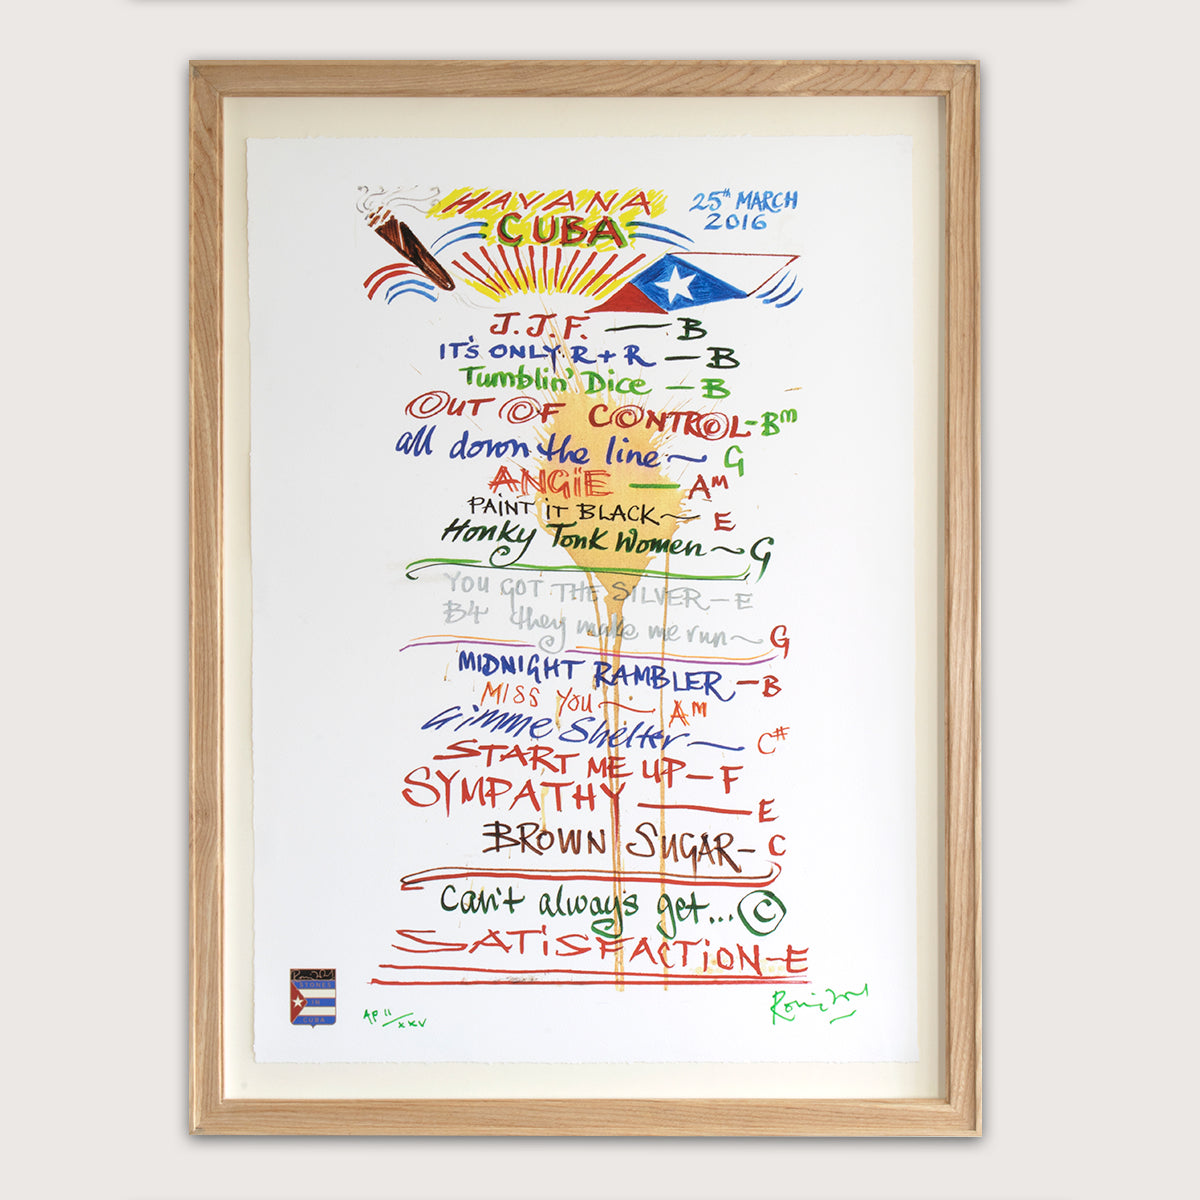 HAVANA
CUBA
25th MARCH
2016
J.J.F. — B
IT'S ONLY R + R — B
Tumblin' Dice — B
OUT OF CONTROL - Bm
all down the line ~ G
ANGiE — Am
PAiNT iT BLACK ~ E
Honky Tonk Women ~ G
YOU GOT THE SiLVER — E
B4 they make me run ~ G
MiDNiGHT RAMBLER — B
MiSS YOU ~ Am
Gimme Shelter ~ C#
START ME UP — F
SYMPATHY — E
BROWN SUGAR — C
Can't always get... ©
SATiSFACTiON - E
STONES
IN
CUBA
AP 11/XXV